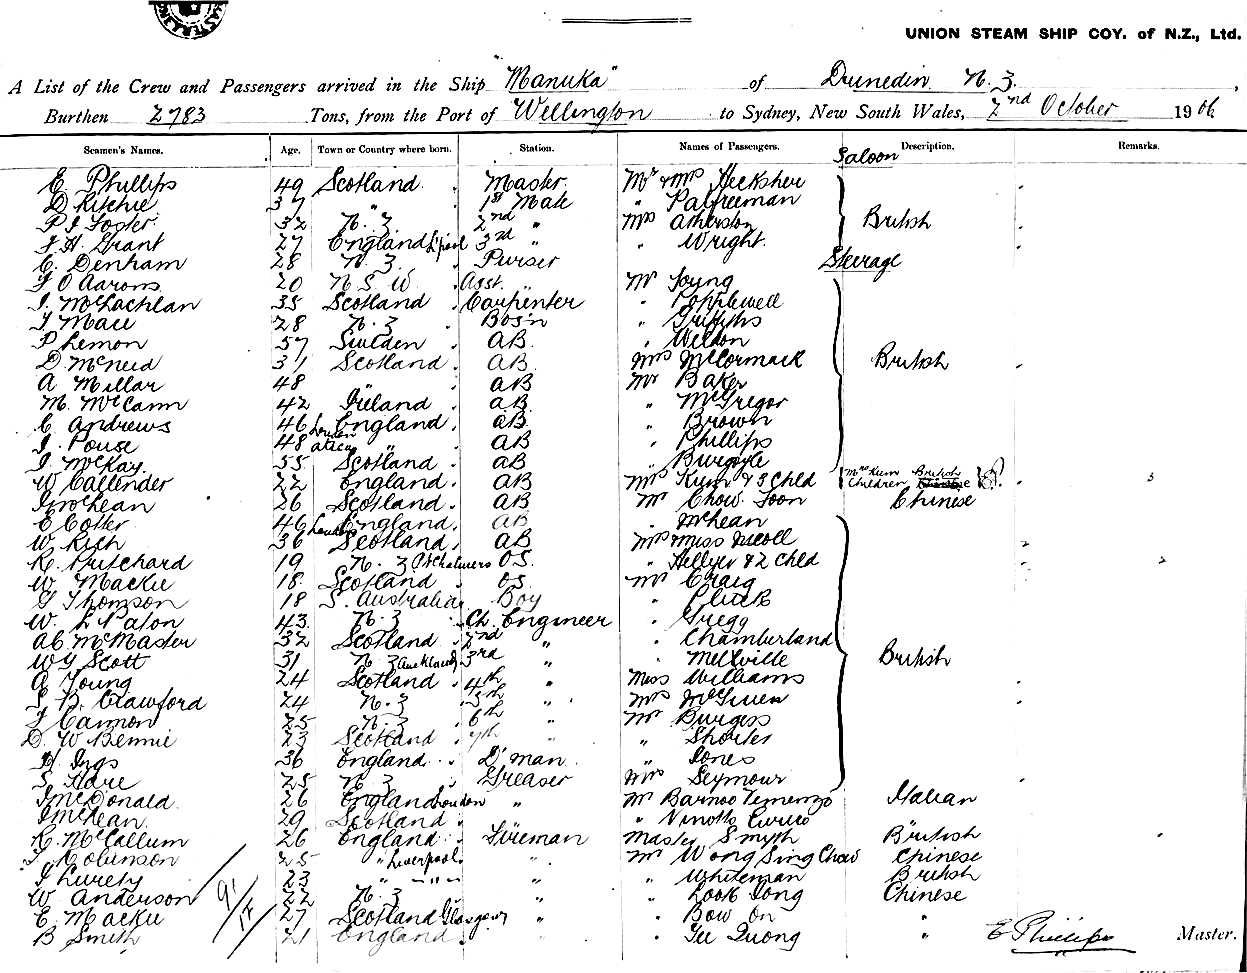 UNION STEAM SHIP COY. of N.Z., Ltd.
A List of the Crew and Passengers arrived in the Ship "Manuka" of Dunedin N.Z.,
Burthen 2783 Tons, from the Port of Wellington to Sydney, New South Wales, 2nd October 1906
Seamen's Names. Age. Town or Country where born. Station. Names of Passengers. Description. Remarks.
Saloon
E Phillips 49 Scotland Master Mr & Mrs Hecksher
D Ritchie 37 " 1st Mate " Palfreeman
P J Foster 32 N.Z. 2nd " Mrs Atherston British
J H Grant 27 England L'pool 3rd " " Wright
C Denham 28 N.Z. Purser Steerage
J O Aarons 20 N S W. Asst. " Mr Young
J. McLachlan 35 Scotland Carpenter " Popplewell
J Mace 28 N.Z Bos'n " Griffiths
P Lemon 57 Sweden AB. " Weldon
D McNeid 31 Scotland AB. Mrs McCormack British
A Millar 48 " AB Mr Baker
M. McCann 42 Ireland AB. " McGregor
C Andrews 46 London England AB. " Brown
J. Pouse 48 " AB " Phillips
J McKay 55 Scotland AB " Burgoyle
W Callender 22 England AB Mrs Kum & 3 Chld Mrs Kum British Children 3
J McLean 26 Scotland AB Mr Chow Foon Chinese
E Coster 46 London England AB " McLean
W Rich 36 Scotland AB Mrs & Miss Nicoll 2
R. Pritchard 19 N.Z Pt Chalmers OS. " Hellyer & 2 Chld 2
W Mackie 18 Scotland OS. Mr Craig
G Thomson 18 S. Australia Boy " Pluck
W. L Paton 43. N.Z Ch. Engineer " Gregg
A C McMaster 32 Scotland 2nd " " Chamberland
W G Scott 31 N Z Auckland 3rd " " Mellville British
A Young 24 Scotland 4th " Miss Williams
B. Crawford 24 N.Z 5th " Mrs
J Cannon 25 N.Z 6th " Mr Burgess
D. W Bennie 23 Scotland 7th " " Shorter
H Ings 36 England D'man " Jones
S Hare 25 N Z Greaser Mrs Seymour
J McDonald 26 England London " Mr Italian
J McLean 29 Scotland " "
R. McCallum 26 England Fireman Master Smyth British
J Robinson 25 " Liverpool " Mr Wong Sing Chow Chinese
J Lurety 23 " " " " Whiteman British
W Anderson 22 N.Z " " Look Tong Chinese
E Mackie 27 Scotland Glasgow " " Bow On "
B Smith 21 England " " Yee Quong "
E Phillips Master.